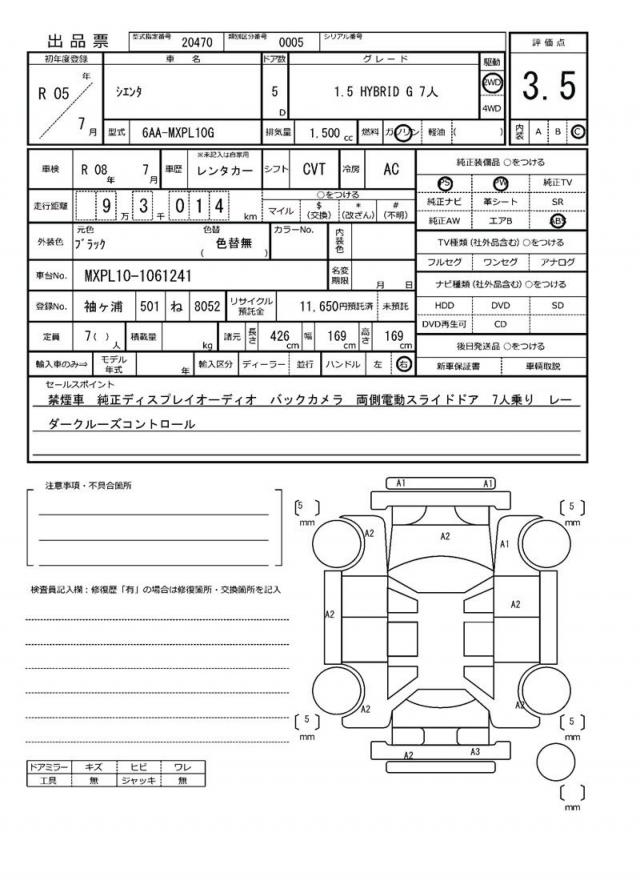 出品票 型式指定番号 20470 類別区分番号 0005 シリアル番号
初年度登録 車名 ドア数 グレード 駆動 評価点
R 05年 7月 シエンタ 5D 1.5 HYBRID G 7人 2WD 4WD 3.5
型式 6AA-MXPL10G 排気量 1.500 cc 燃料 ガソリン 軽油 ( ) 内装 A B C
車検 R 08年 7月 車歴 ※未記入は自家用 レンタカー シフト CVT 冷房 AC 純正装備品 ○をつける
PS PW 純正TV
走行距離 9万3千014 km ○をつける マイル $(交換) *(改ざん) #(不明) 純正ナビ 革シート SR
純正AW エアB ABS
外装色 元色 ブラック 色替 色替無 ( ) カラーNo. 内装色 TV種類 (社外品含む) ○をつける
フルセグ ワンセグ アナログ
車台No. MXPL10-1061241 名変期限 月 日 ナビ種類 (社外品含む) ○をつける
登録No. 袖ヶ浦 501 ね 8052 リサイクル預託金 11,650円預託済 未預託 HDD DVD SD
DVD再生可 CD
定員 7( )人 積載量 kg 諸元 長さ 426cm 幅 169cm 高さ 169cm 後日発送品 ○をつける
輸入車のみ⇒ モデル年式 年 輸入区分 ディーラー 並行 ハンドル 左 右 新車保証書 車輌取説
セールスポイント
禁煙車 純正ディスプレイオーディオ バックカメラ 両側電動スライドドア 7人乗り レー
ダークルーズコントロール
注意事項・不具合箇所
検査員記入欄：修復歴「有」の場合は修復箇所・交換箇所を記入
A1 A1
[5]mm [5]mm
A2 A2 A1
A2 A2
A2 A2
[5]mm [5]mm
A2 A3
[ ]mm
ドアミラー キズ ヒビ ワレ
工具 無 ジャッキ 無